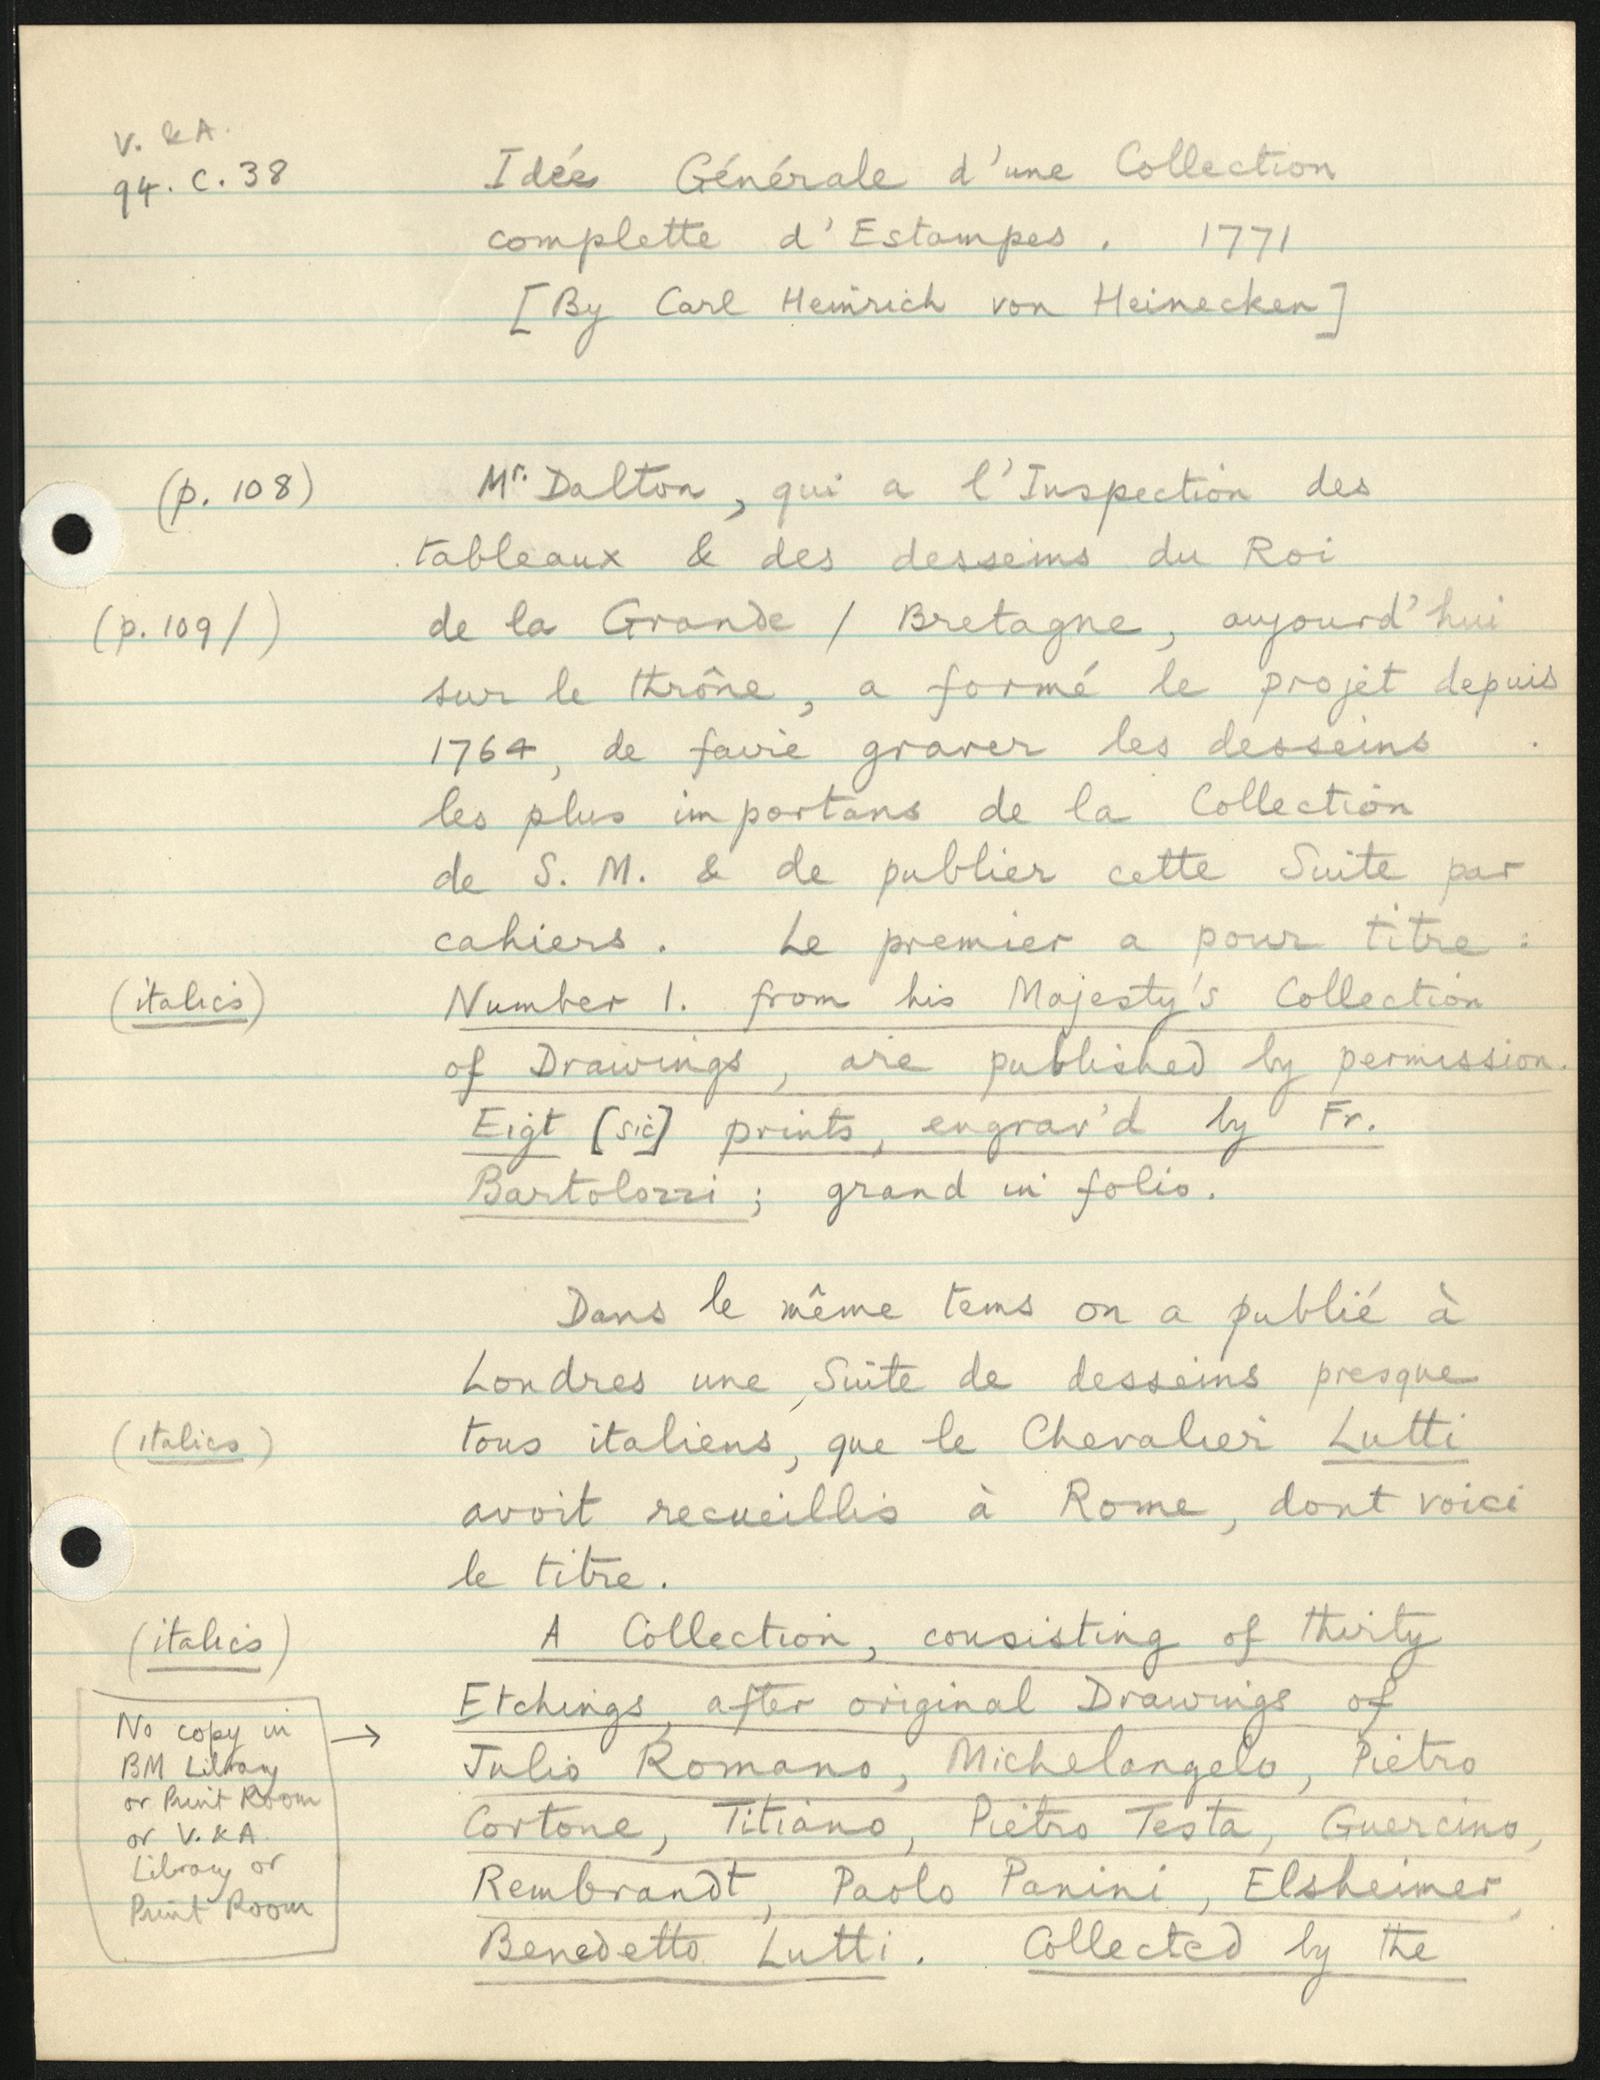 V. & A.
94. C. 38
Idée Générale d'une Collection
complette d'Estampes. 1771
[By Carl Heinrich von Heinecken]
(p. 108)
Mr. Dalton, qui a l'Inspection des
tableaux & des desseins du Roi
(p. 109/)
de la Grande / Bretagne, aujourd'hui
sur le thrône, a formé le projèt depuis
1764, de faire graver les desseins
les plus importans de la Collection
de S. M. & de publier cette Suite par
cahiers. Le premier a pour titre:
(italics)
Number 1. from his Majesty's Collection
of Drawings, are published by permission.
Eigt [sic] prints, engrav'd by Fr.
Bartolozzi; grand in folio.
Dans le même tems on a publié à
Londres une Suite de desseins presque
(italics)
tous italiens, que le Chevalier Lutti
avoit recueillis à Rome, dont voici
le titre.
(italics)
A Collection, consisting of thirty
Etchings, after original Drawings of
Julio Romano, Michelangelo, Piétro
Cortone, Titiano, Piétro Testa, Guercino,
Rembrandt, Paolo Panini, Elsheimer,
Benedetto Lutti. Collected by the
No copy in →
BM Library
or Print Room
or V. & A.
Library or
Print Room